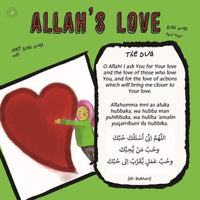 ALLAH'S LOVE
The Dua
O Allah! I ask You for Your love
and the love of those who love
You, and for the love of actions
which will bring me closer to
Your love.
Allahumma inni as aluka
hubbaka, wa hubba man
yuhibbaka, wa hubba 'amalin
yuqarribuni ila hubbika.
اللَّهُمَّ إِنِّي أَسْأَلُكَ حُبَّكَ
وَحُبَّ مَنْ يُحِبُّكَ
وَحُبَّ عَمَلٍ يُقَرِّبُ إِلَى حُبِّكَ